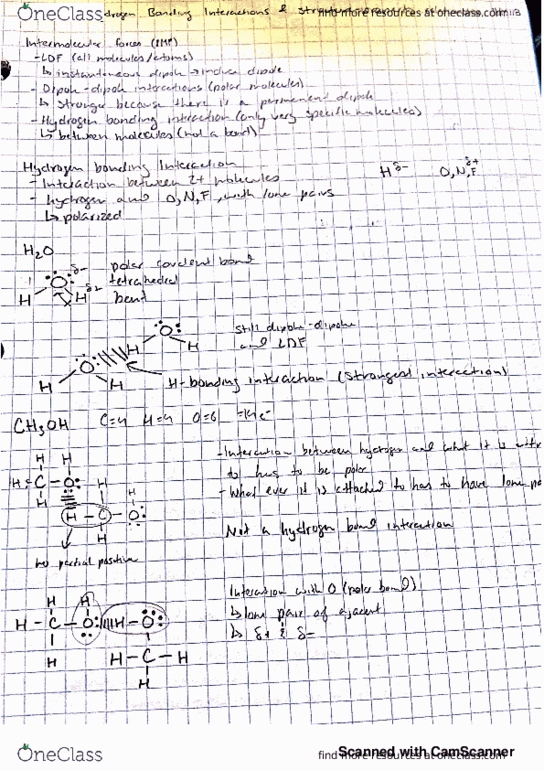 OneClass
Hydrogen Bonding Interactions &
find more resources at oneclass.com
Intermolecular forces (IMF)
- LDF (all molecules/atoms)
↳ instantaneous dipole → induce dipole
- Dipole-dipole interactions (polar molecules)
↳ stronger because there is a permanent dipole
- Hydrogen bonding interaction (only very specific molecules)
↳ between molecules (not a bond)
Hydrogen bonding Interaction
- Interaction between 2+ molecules
- hydrogen and O,N,F, with lone pairs
↳ polarized
H δ- O,N,F δ+
H₂O
polar covalent bond
tetrahedral
bent
O δ-
H H δ+
O
H H
still dipole-dipole
and LDF
O
H H
H-bonding interaction (strongest interaction)
CH₃OH C=4 H=4 O=6 =14e⁻
H H
H-C-O
H
H H
H-C-O
H
- Interaction between hydrogen and what it is
to has to be polar
- What ever it is attached to has to have lone
Not a hydrogen bond interaction
no partial positive
Interaction with O (polar bond)
↳ lone pair of adjacent
↳ δ+ & δ-
H H
H-C-O H-O
H
H-C-H
H
OneClass
find more resources at oneclass.com
Scanned with CamScanner